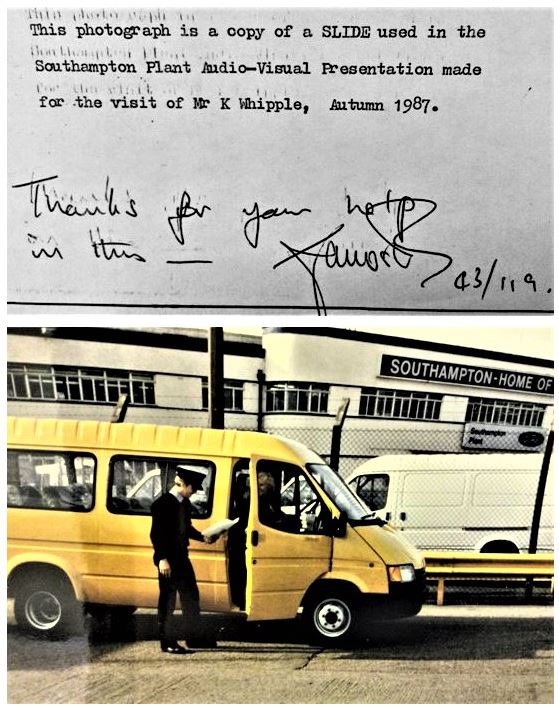 This photograph is a copy of a SLIDE used in the
Southampton Plant Audio-Visual Presentation made
for the visit of Mr K Whipple, Autumn 1987.
Thanks for your help
in this —
43/119.
SOUTHAMPTON-HOME OF
Southampton
Plant